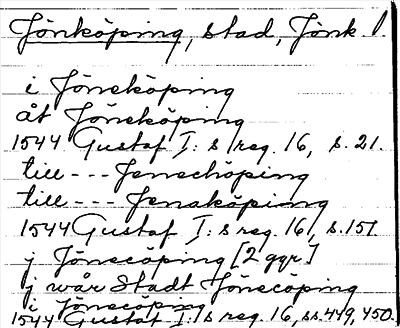 Jönköping, stad, Jönk. l.
i Jöneköping
åt Jöneköping
1544 Gustaf I:s reg. 16, s. 21.
till --- Jenechöping
till --- Jenaköping
1544 Gustaf I:s reg. 16, s. 151
j Jönecöping [2 ggr]
j wår Stadt Jönecöping
i Jönecöping
1544 Gustaf I:s reg. 16, ss. 449, 450.